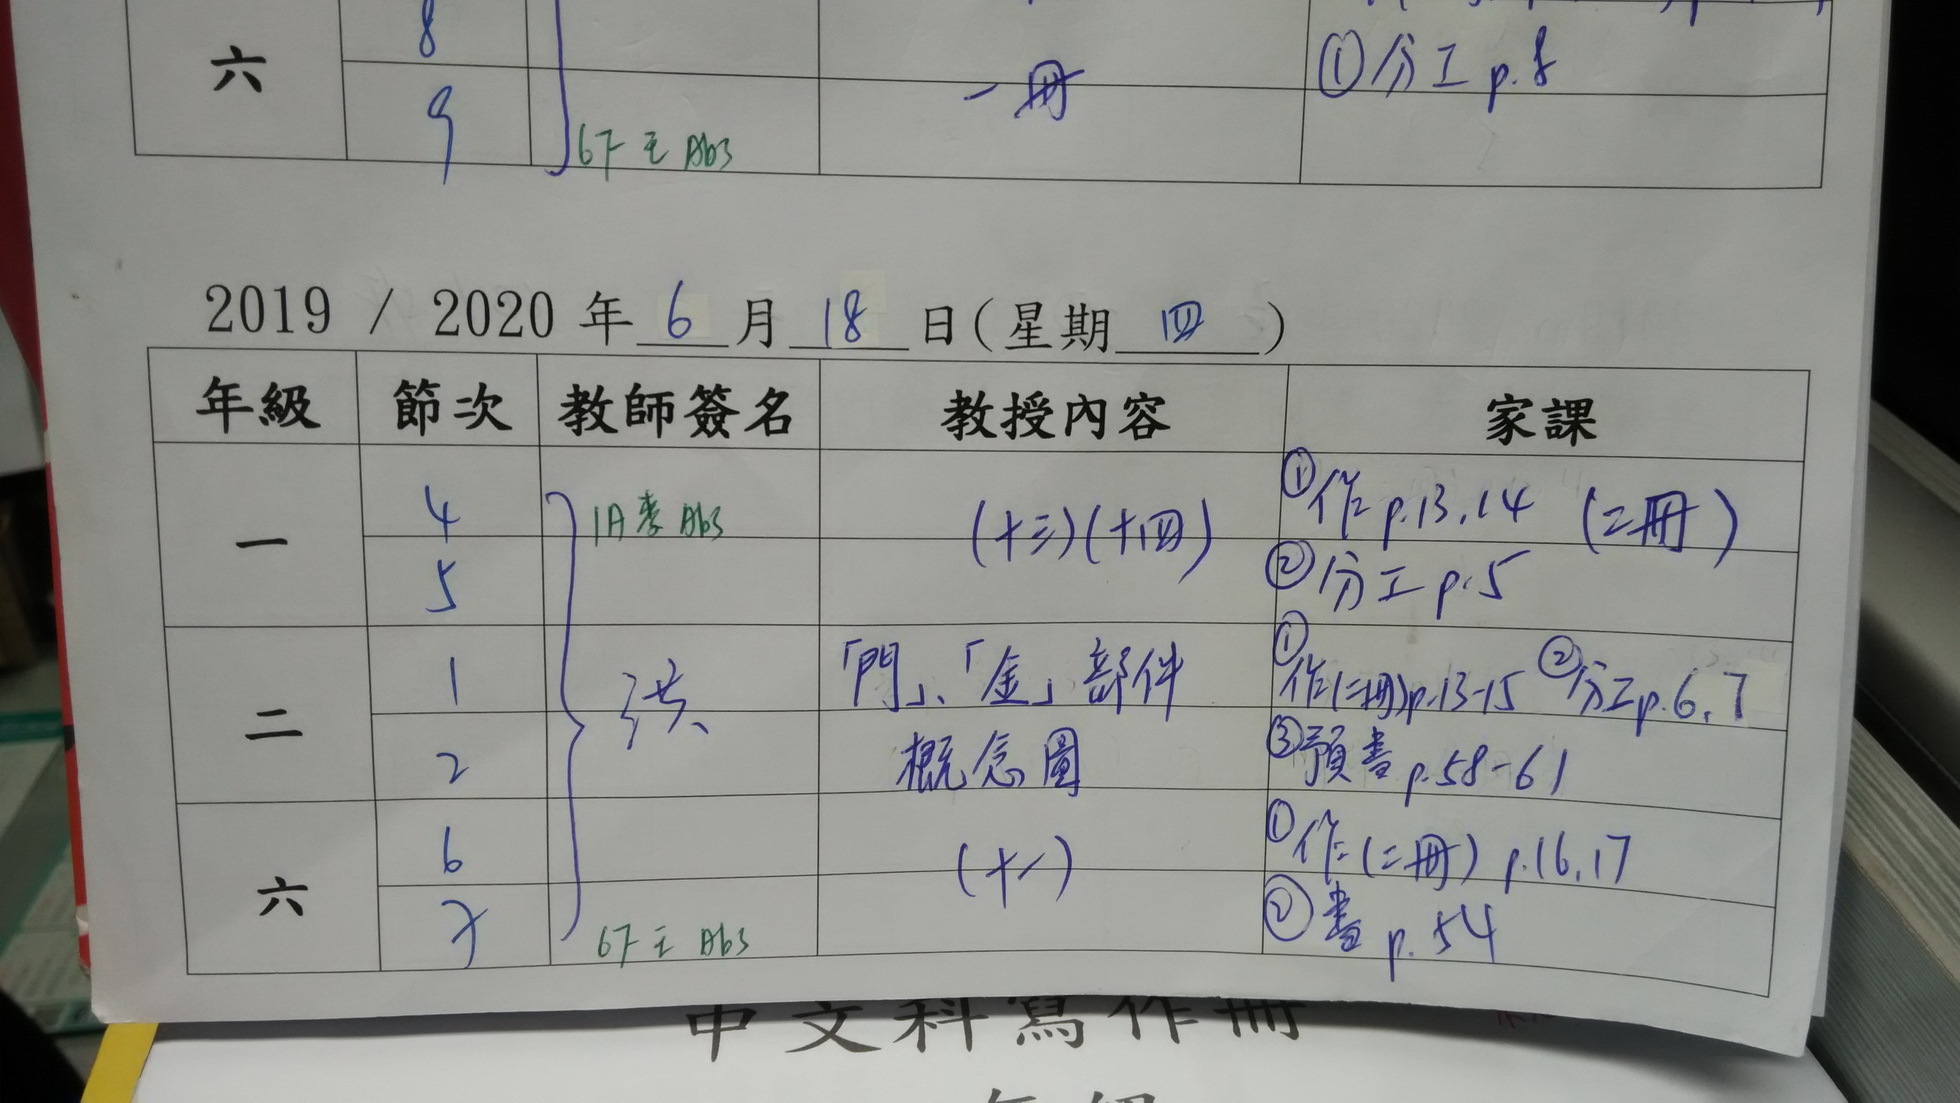 六
8
9
67 王 Abs
一冊
①分工 p.8
2019 / 2020 年 6 月 18 日(星期 四 )
年級 節次 教師簽名 教授內容 家課
一
4
5
1A 李 Abs
(十三)(十四)
①作 p.13,14 (二冊)
②分工 p.5
二
1
2
洪
「門」、「金」部件
概念圖
①作(二冊)p.13-15 ②分工p.6,7
③預書 p.58-61
六
6
7
67 王 Abs
(十一)
①作(二冊) p.16,17
②書 p.54
中文科寫作冊
年級